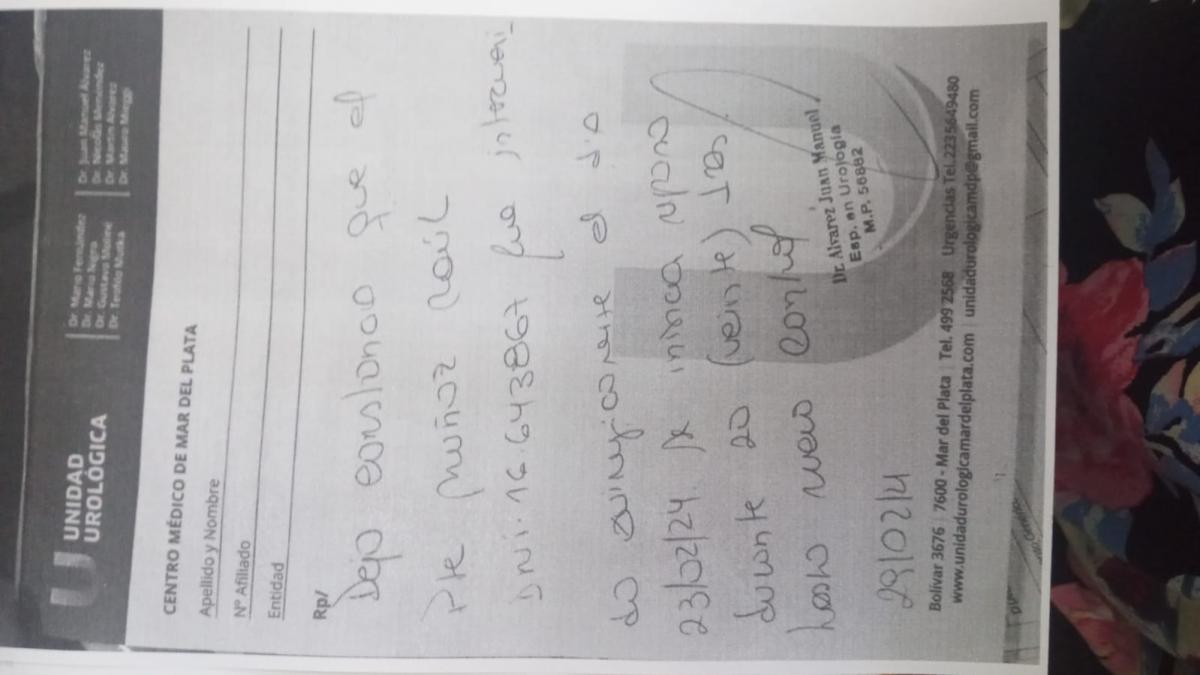 UNIDAD
UROLÓGICA
Dr. Mario Fernández
Dr. Mario Negro
Dr. Gustavo Mobine
Dr. Teófilo Mustka
Dr. Juan Manuel Álvarez
Dr. Nicolás Menéndez
Dr. Martín Alvarez
Dr. Mauro Meggi
CENTRO MÉDICO DE MAR DEL PLATA
Apellido y Nombre
Nº Afiliado
Entidad
Rp/
Dejo constancia que el
Pte Muñoz Raúl
DNI: 16.643867 fue interveni_
do quirúrgicamente el día
23/02/24. Se indica reposo
durante 20 (veinte) días
hasta nuevo control
29/02/24
Dr. Alvarez Juan Manuel
Esp. en Urología
M.P. 56882
Bolívar 3676 | 7600 - Mar del Plata | Tel. 499 2568 Urgencias Tel. 2235649480
www.unidadurologicamardelplata.com | unidadurologicamdp@gmail.com